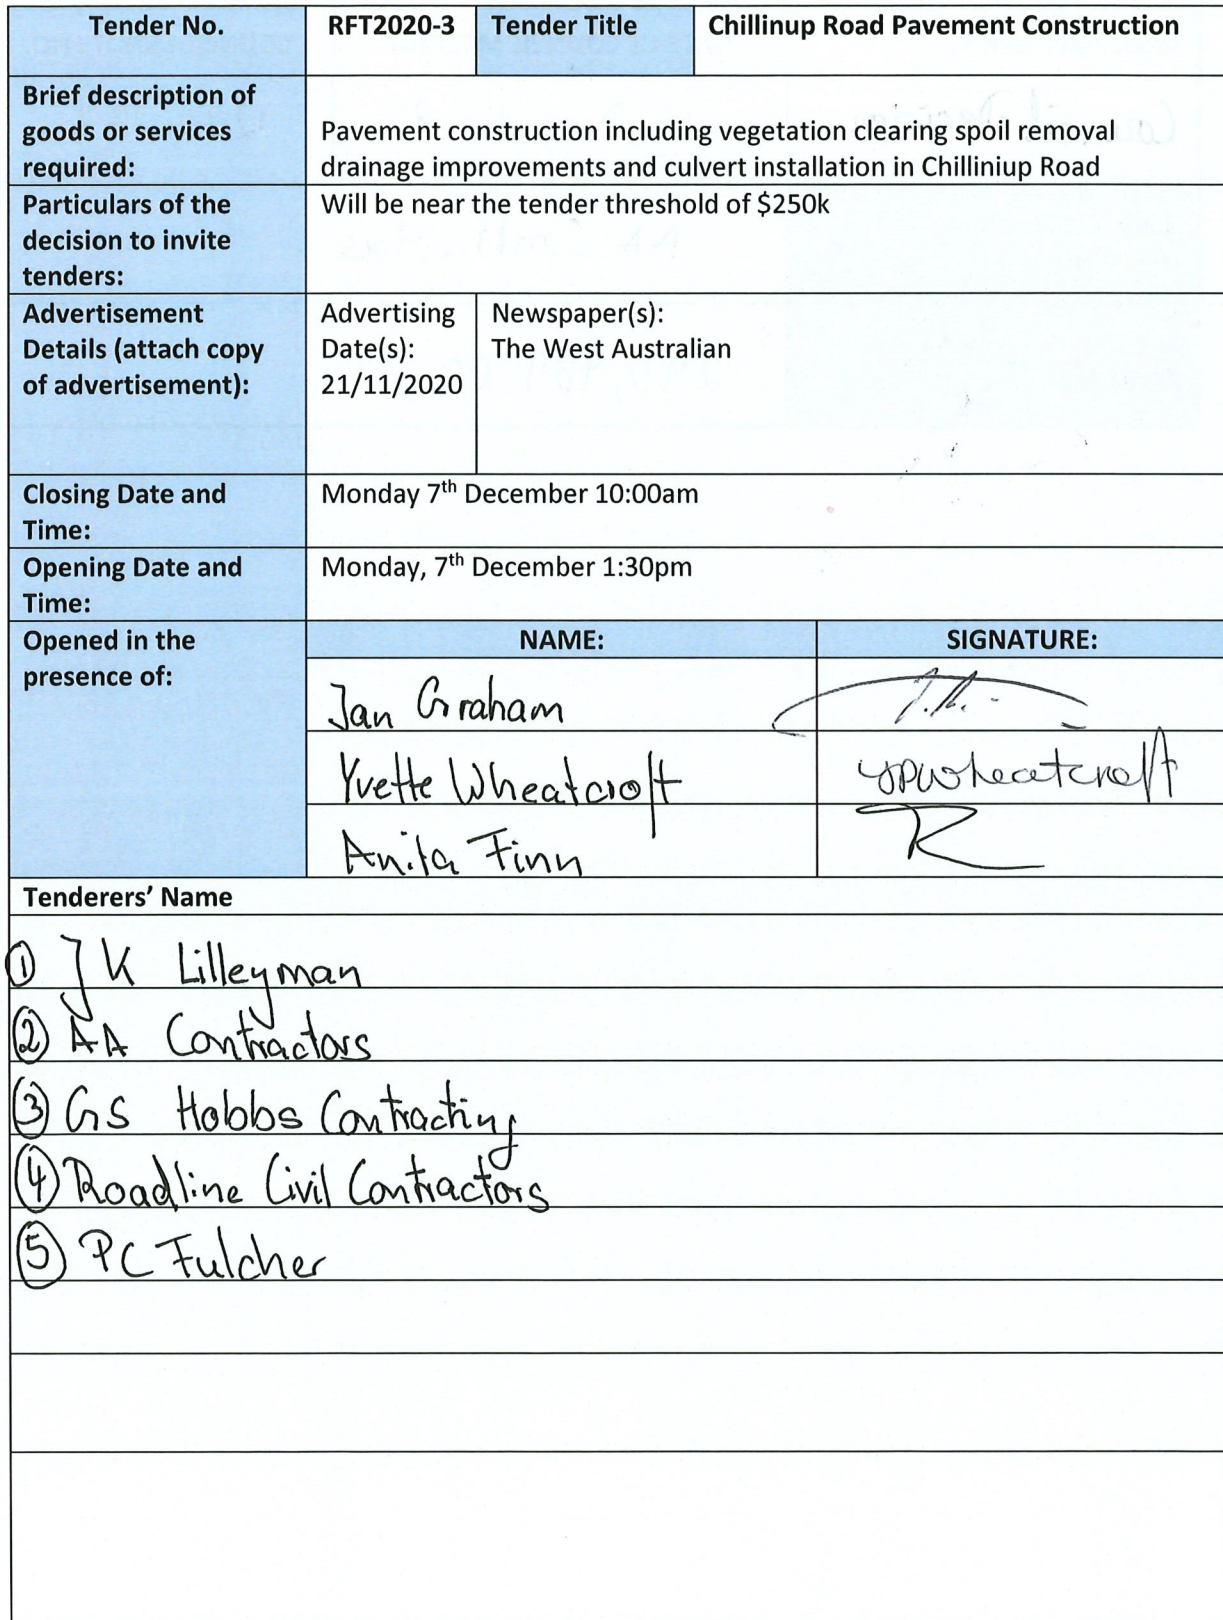 Tender No. RFT2020-3 Tender Title Chillinup Road Pavement Construction
Brief description of
goods or services
required:
Pavement construction including vegetation clearing spoil removal
drainage improvements and culvert installation in Chilliniup Road
Particulars of the
decision to invite
tenders:
Will be near the tender threshold of $250k
Advertisement
Details (attach copy
of advertisement):
Advertising
Date(s):
21/11/2020
Newspaper(s):
The West Australian
Closing Date and
Time:
Monday 7th December 10:00am
Opening Date and
Time:
Monday, 7th December 1:30pm
Opened in the
presence of:
NAME: SIGNATURE:
Jan Graham
Yvette Wheatcroft ypwheatcroft
Anita Finn
Tenderers’ Name
① JK Lilleyman
② AA Contractors
③ GS Hobbs Contracting
④ Roadline Civil Contractors
⑤ PC Fulcher